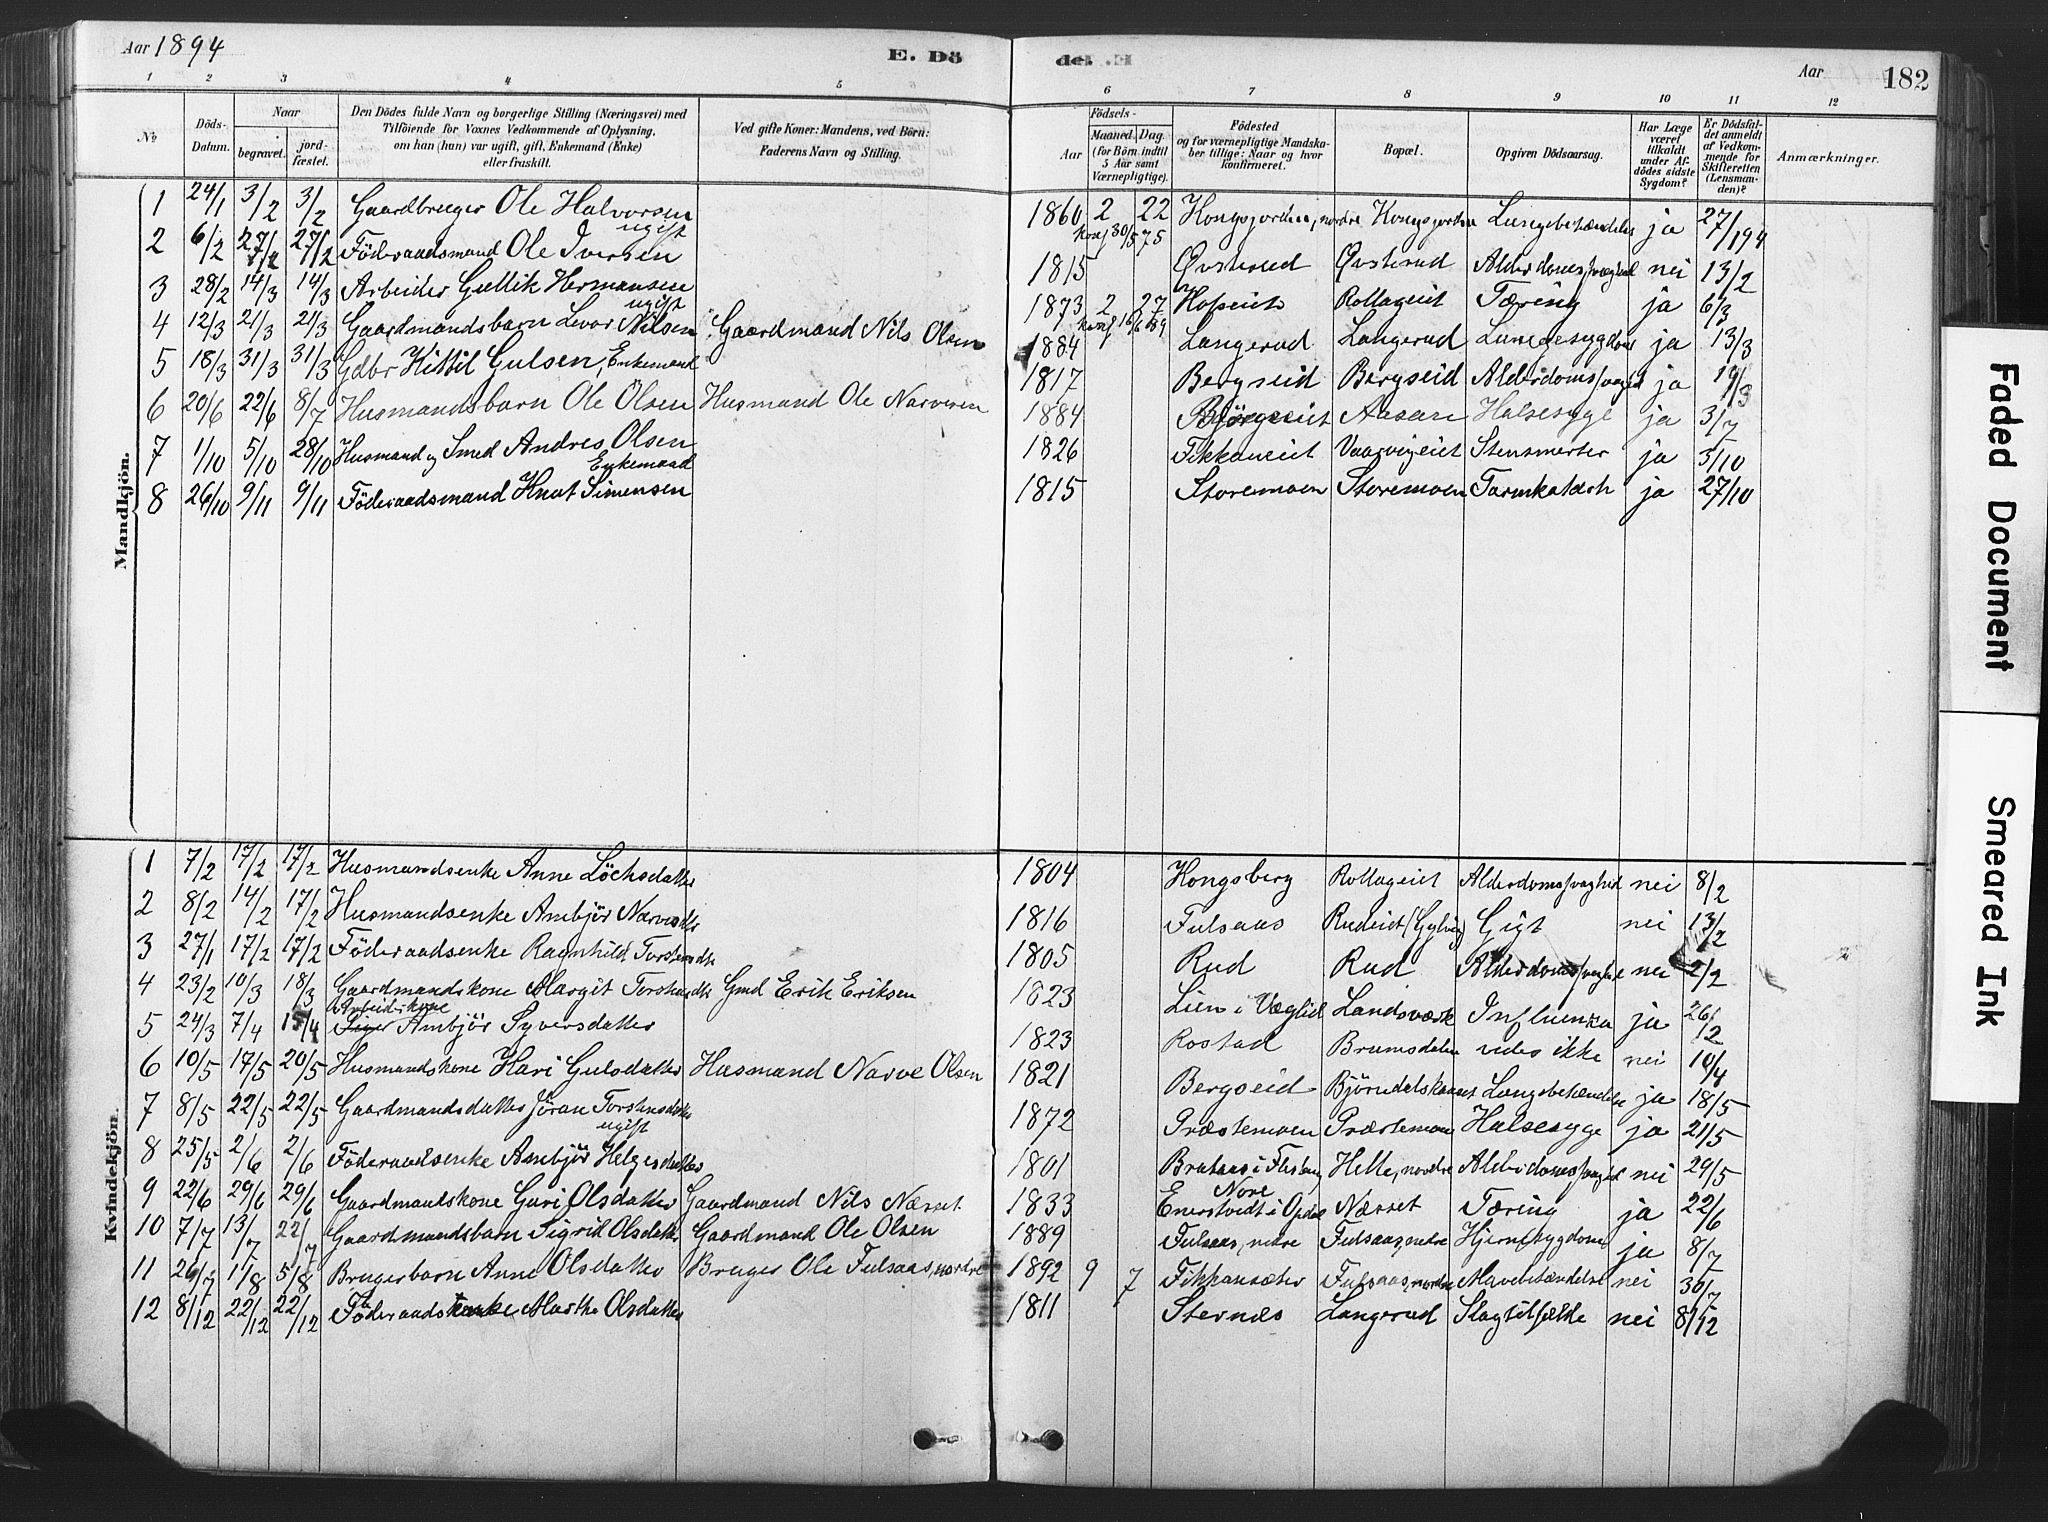 Aar 1894
E. Dö
de.
Aar
182
1 2 3 4 5 6 7 8 9 10 11 12
№
Döds-Datum.
Naar
begravet.
jordfæstet.
Den Dödes fulde Navn og borgerlige Stilling (Næringsvei) med
Tilföiende for Voxnes Vedkommende af Oplysning,
om han (hun) var ugift, gift, Enkemand (Enke)
eller fraskilt.
Ved gifte Koner: Mandens, ved Börn:
Faderens Navn og Stilling.
Födsels-
Aar
Maaned. Dag.
(for Börn indtil
5 Aar samt
Værnepligtige).
Födested
og for værnepligtige Mandskaber
tillige: Naar og hvor
konfirmeret.
Bopæl.
Opgiven Dödsaarsag.
Har Læge
været
tilkaldt
under Afdödes
sidste
Sygdom?
Er Dödsfaldet
anmeldt
af Vedkommende
for
Skifteretten
(Lensmanden)?
Anmærkninger.
Mandkjön.
1 24/1 3/2 3/2 Gaardbruger Ole Halvorsen ugift 1860 2 22 Kongsjorden, nordre Kongsjorden Lungebetændelse ja 27/1 94
konf 30/5 75
2 6/2 27/2 27/2 Föderaadsmand Ole Iversen 1815 Øvsterud Øvsterud Alderdomssvaghed nei 13/2
3 28/2 14/3 14/3 Arbeider Gullik Hermansen ugift 1873 2 27 Hopseiet Rollageiet Tæring ja 6/3
konf 16/6 89
4 12/3 21/3 21/3 Gaardmandsbarn Levor Nilsen Gaardmand Nils Olsen 1884 Langerud Langerud Lungesygdom ja 13/3
5 18/3 31/3 31/3 Gdbr Kittil Gulsen, Enkemand 1817 Bergseid Bergseid Alderdomssvaghed ja 19/3
6 20/6 22/6 8/7 Husmandsbarn Ole Olsen Husmand Ole Narvesen 1884 Bjørgeeiet Aasaen Halsesyge ja 3/7
7 1/10 5/10 28/10 Husmand og Smed Andres Olsen Enkemand 1826 Fikkaneiet Vaarvigeiet Stensmerter ja 3/10
8 26/10 9/11 9/11 Föderaadsmand Knut Simensen 1815 Storemoen Storemoen Tarmkatarh ja 27/10
Kvindekjön.
1 7/2 17/2 17/2 Husmandsenke Anne Löchsdatter 1804 Kongsberg Rollageiet Alderdomssvaghed nei 8/2
2 8/2 14/2 17/2 Husmandsenke Ambjör Narvesdtr 1816 Fulsaas Rudeiet (Gylvig) Gigt nei 13/2
3 27/1 17/2 17/2 Föderaadsenke Ragnhild Torstensdtr 1805 Rud Rud Alderdomssvaghed nei 2/2
4 23/2 10/3 18/3 Gaardmandskone Margit Torstensdtr Gmd Erik Eriksen 1823 Lien i Væglid Landsværk Influenza ja 26/12
5 24/3 7/4 15/4 Arbeidskone Ambjör Syversdatter 1823 Rostad Brumsdalen vides ikke nei 10/4
6 10/5 17/5 20/5 Husmandskone Kari Gulsdatter Husmand Narve Olsen 1821 Bergseid Björndalskaaset Lungebetændelse ja 18/5
7 8/5 22/5 22/5 Gaardmandsdatter Jöran Torstensdatter ugift 1872 Præstemoen Præstemoen Halsesyge ja 21/5
8 25/5 2/6 2/6 Föderaadsenke Ambjör Helgesdatter 1801 Brataas i Flesberg Helle, nordre Alderdomssvaghed nei 29/5
9 22/6 29/6 29/6 Gaardmandskone Guri Olsdatter Gaardmand Nils Næset 1833 Enerstvedt i Opdal Nore Næsset Tæring ja 22/6
10 7/7 13/7 22/7 Gaardmandsbarn Sigrid Olsdatter Gaardmand Ole Olsen 1889 Fulsaas, nedre Fulsaas, nedre Hjernesygdom ja 8/7
11 26/7 1/8 5/8 Brugerbarn Anne Olsdatter Bruger Ole Fulsaas, nordre 1892 9 7 Fikkansæter Fulsaas, nordre Mavebetændelse nei 30/7
12 8/12 22/12 22/12 Föderaadsenke Marthe Olsdatter 1811 Sternes Langerud Slagtilfælde nei 8/12
Faded Document
Smeared Ink